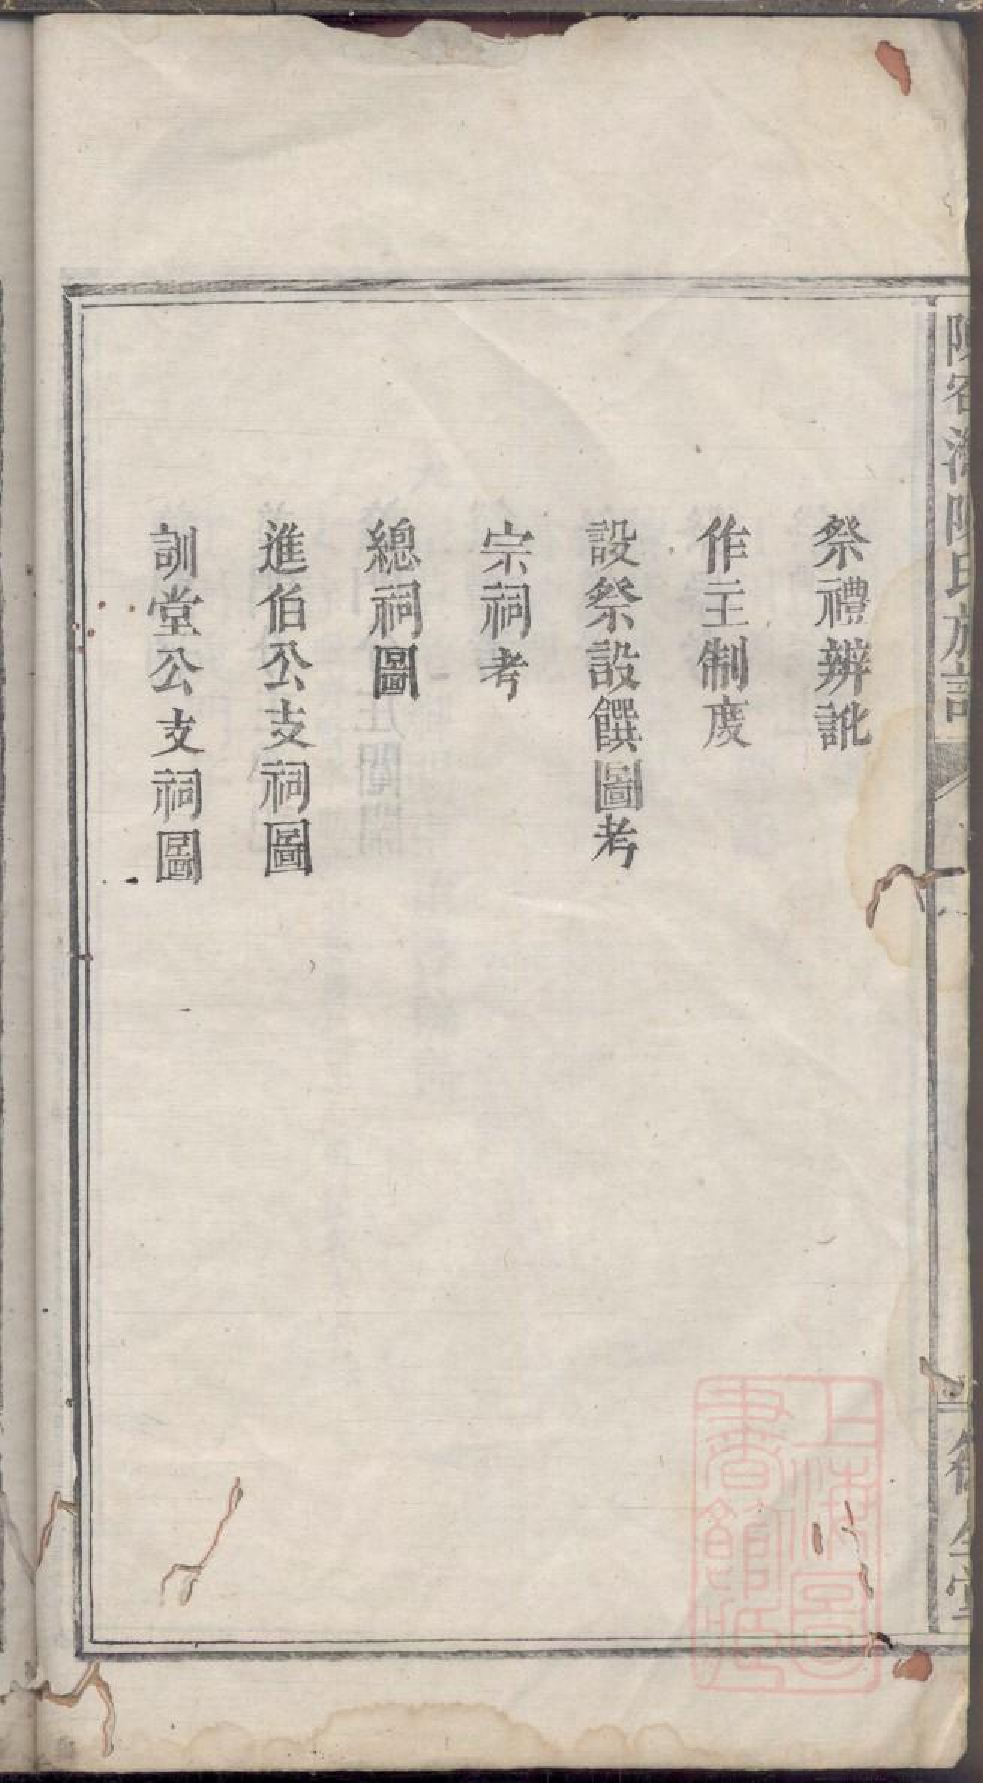 祭禮辨訛
作主制度
設祭設饌圖考
宗祠考
總祠圖
進伯公支祠圖
訓堂公支祠圖
上海圖書館藏